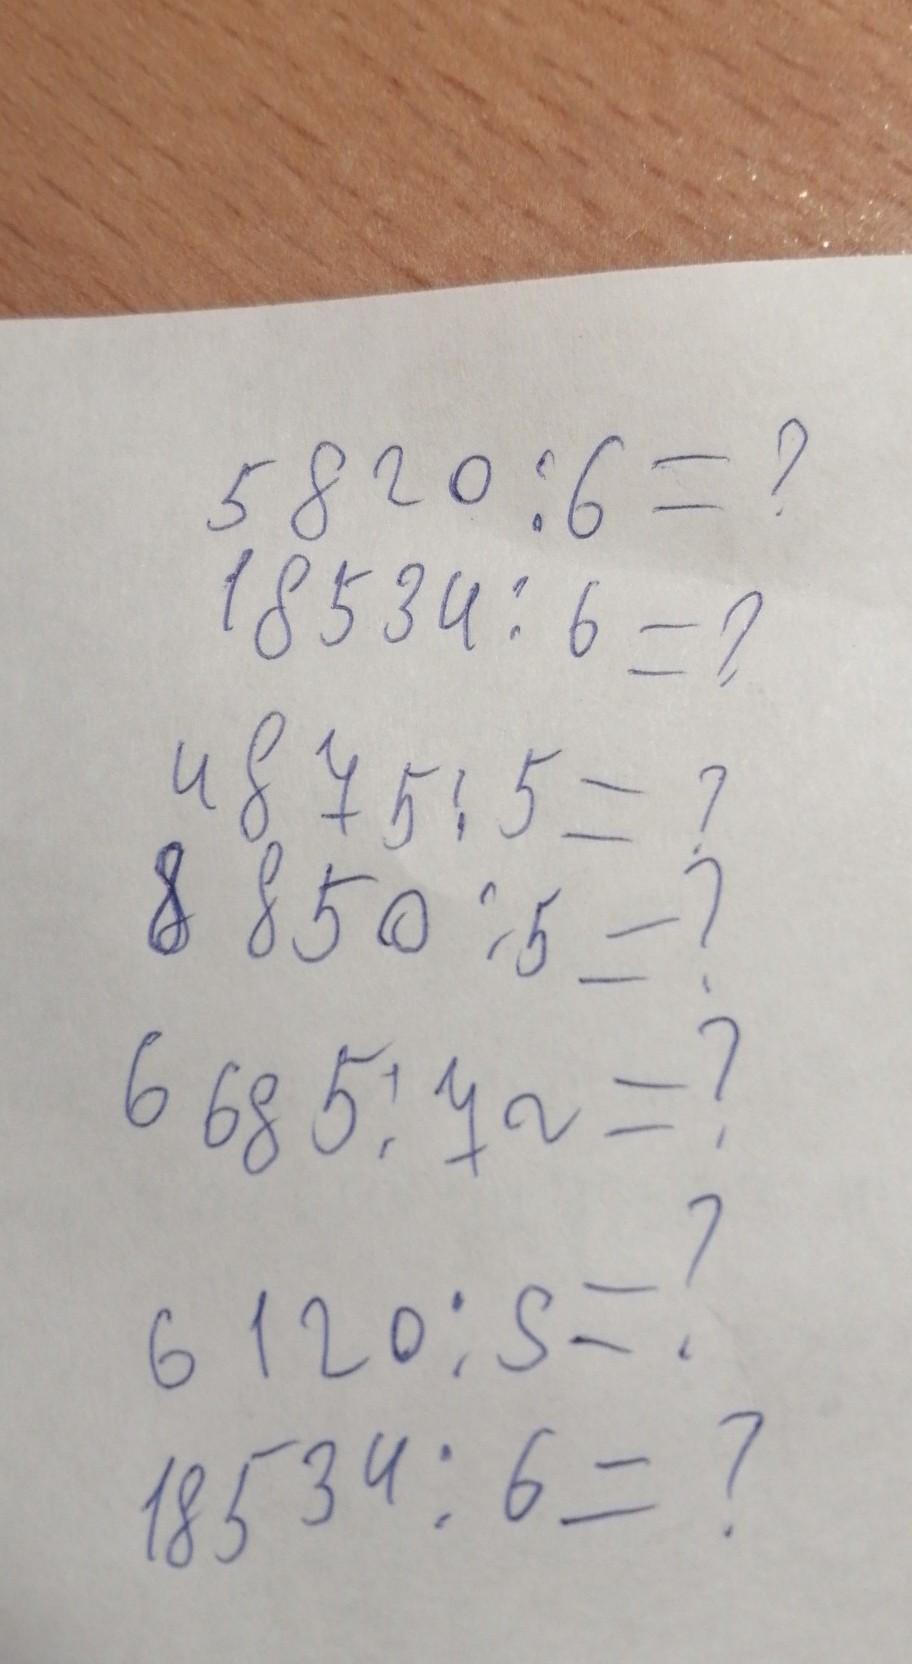 5820:6=?
18534:6=?
4875:5=?
8850:5=?
6685:72=?
6120:5=?
18534:6=?